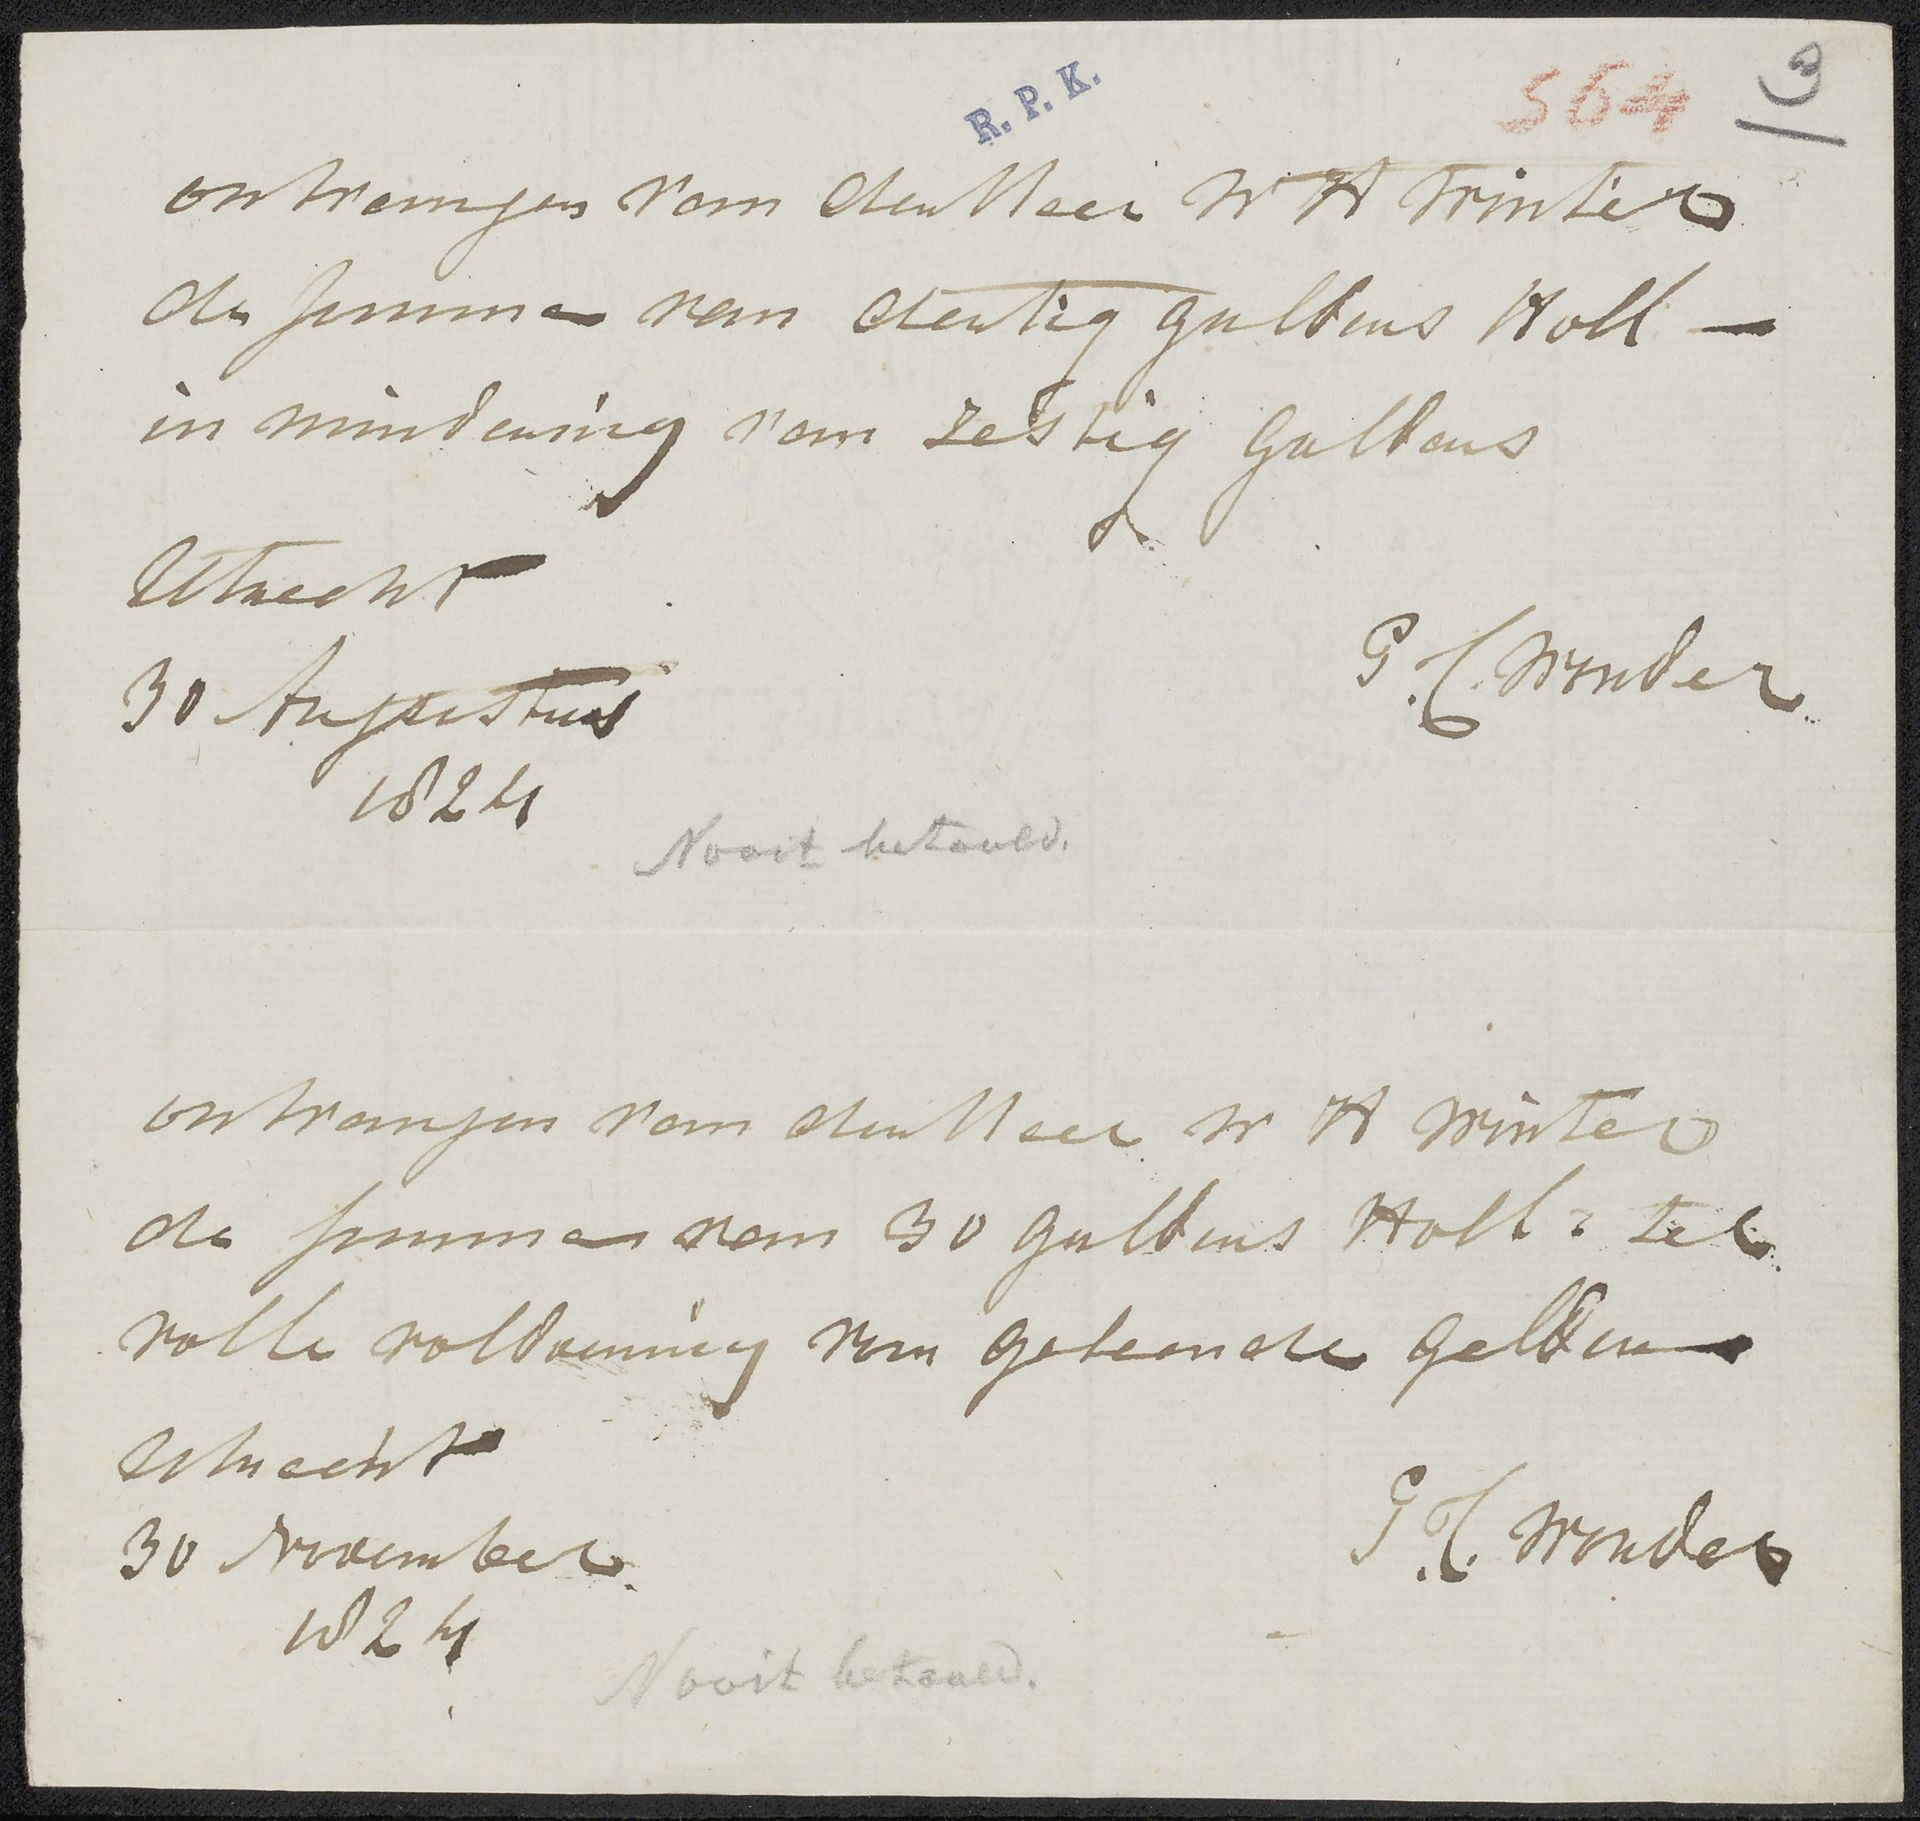 R. P. K.
564
3
ontvangen van den Heer W H Winter
de somma van dertig guldens Holl —
in mindering van zestig guldens
Utrecht
30 Augustus
1824
G. C. Wonder
Nooit betaald.
ontvangen van den Heer W H Winter
de somma van 30 guldens Holl: ter
volle voldoening van geleende gelden
Utrecht
30 November
1824
G. C. Wonder
Nooit betaald.